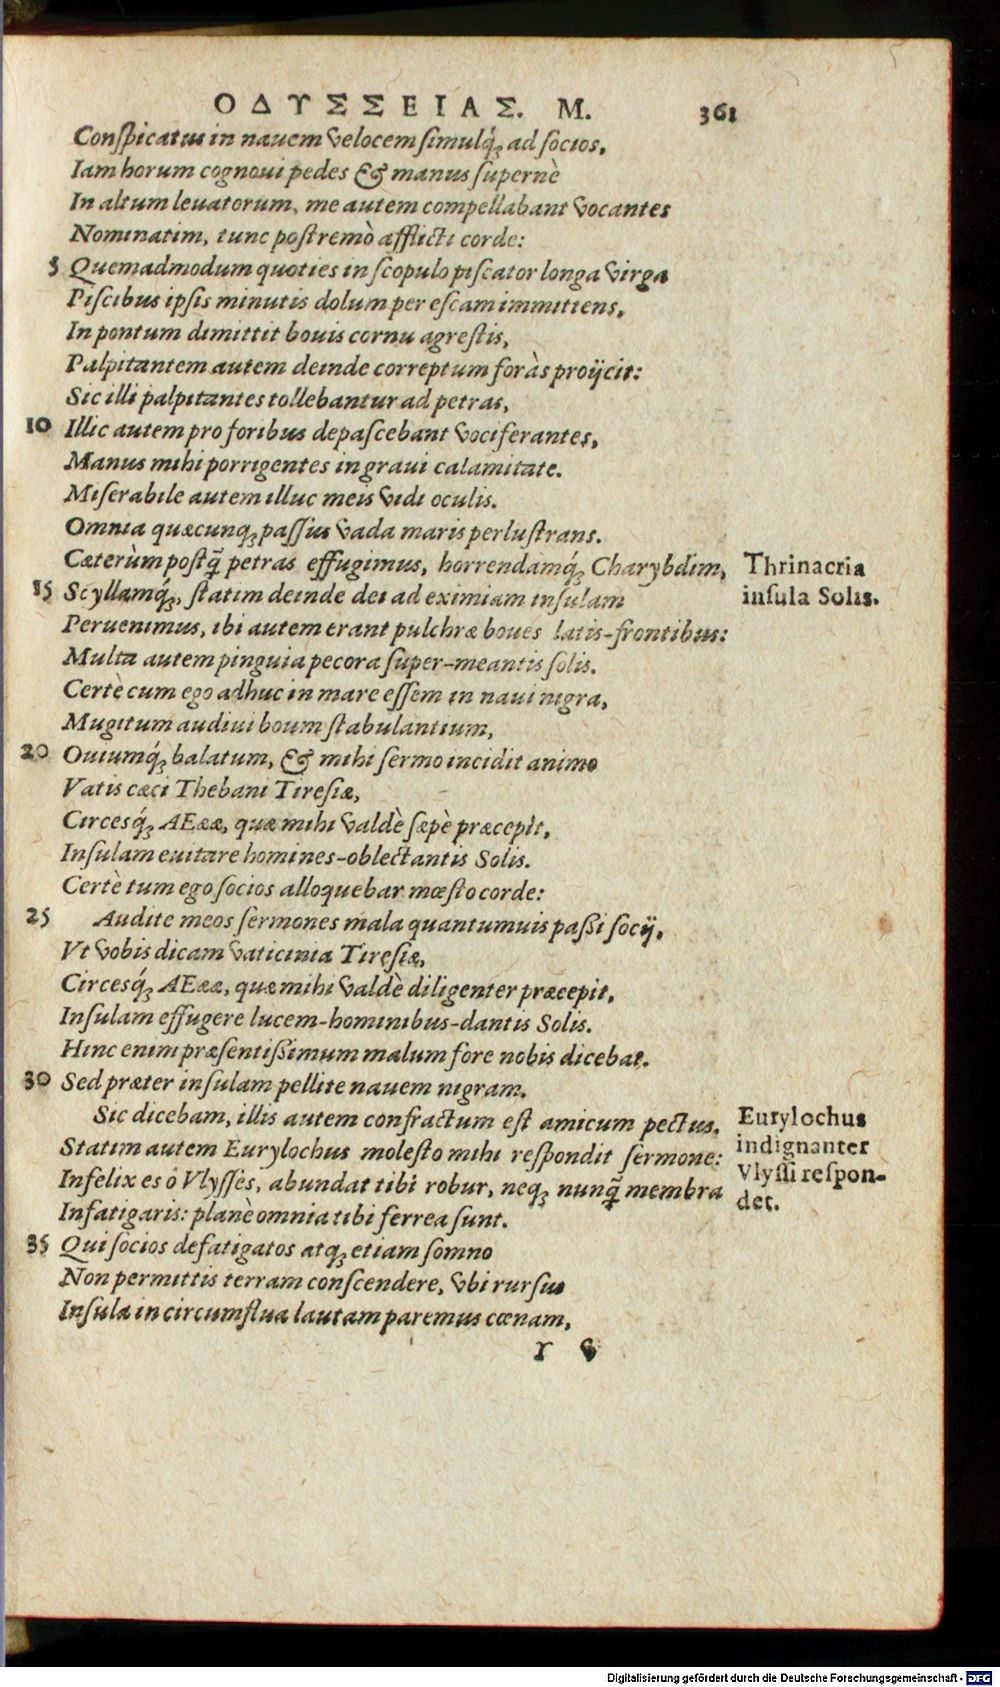 ΟΔΥΣΣΕΙΑΣ. M. 361
Conſpicatus in nauem velocem ſimulq́ꝫ ad ſocios,
Iam horum cognoui pedes & manus ſupernè
In altum leuatorum, me autem compellabant vocantes
Nominatim, tunc poſtremò afflicti corde:
5 Quemadmodum quoties in ſcopulo piſcator longa virga
Piſcibus ipſis minutis dolum per eſcam immittens,
In pontum dimittit bouis cornu agreſtis,
Palpitantem autem deinde correptum foràs proijcit:
Sic illi palpitantes tollebantur ad petras,
10 Illic autem pro foribus depaſcebant vociferantes,
Manus mihi porrigentes in graui calamitate.
Miſerabile autem illuc meis vidi oculis.
Omnia quæcunqꝫ paſſus vada maris perluſtrans.
Cæterùm poſtq̃ petras effugimus, horrendamq́ꝫ Charybdim,
Thrinacria
15 Scyllamq́ꝫ, ſtatim deinde dei ad eximiam inſulam
inſula Solis.
Peruenimus, ibi autem erant pulchræ boues latis-frontibus:
Multa autem pinguia pecora ſuper-meantis ſolis.
Certè cum ego adhuc in mare eſſem in naui nigra,
Mugitum audiui boum ſtabulantium,
20 Ouiumq́ꝫ balatum, & mihi ſermo incidit animo
Vatis cæci Thebani Tireſiæ,
Circesq́ꝫ AEææ, quæ mihi valdè ſæpè præcepit,
Inſulam euitare homines-oblectantis Solis.
Certè tum ego ſocios alloquebar mœſto corde:
25 Audite meos ſermones mala quantumuis paßi ſocij,
Vt vobis dicam vaticinia Tireſiæ,
Circesq́ꝫ AEææ, quæ mihi valdè diligenter præcepit,
Inſulam effugere lucem-hominibus-dantis Solis.
Hinc enim præſentißimum malum fore nobis dicebat.
30 Sed præter inſulam pellite nauem nigram.
Sic dicebam, illis autem confractum eſt amicum pectus.
Eurylochus
Statim autem Eurylochus moleſto mihi reſpondit ſermone:
indignanter
Infelix es ô Vlyſſes, abundat tibi robur, neqꝫ nunq̃ membra
Vlyſſi reſpon-
Infatigaris: planè omnia tibi ferrea ſunt.
det.
35 Qui ſocios defatigatos atqꝫ etiam ſomno
Non permittis terram conſcendere, vbi rurſus
Inſula in circumflua lautam paremus cœnam,
Digitalisierung gefördert durch die Deutsche Forschungsgemeinschaft - DFG